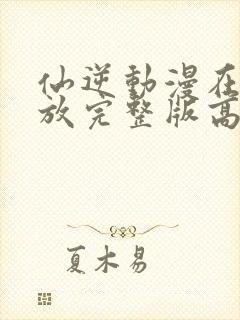 仙逆動漫在
放完整版高
夏木易